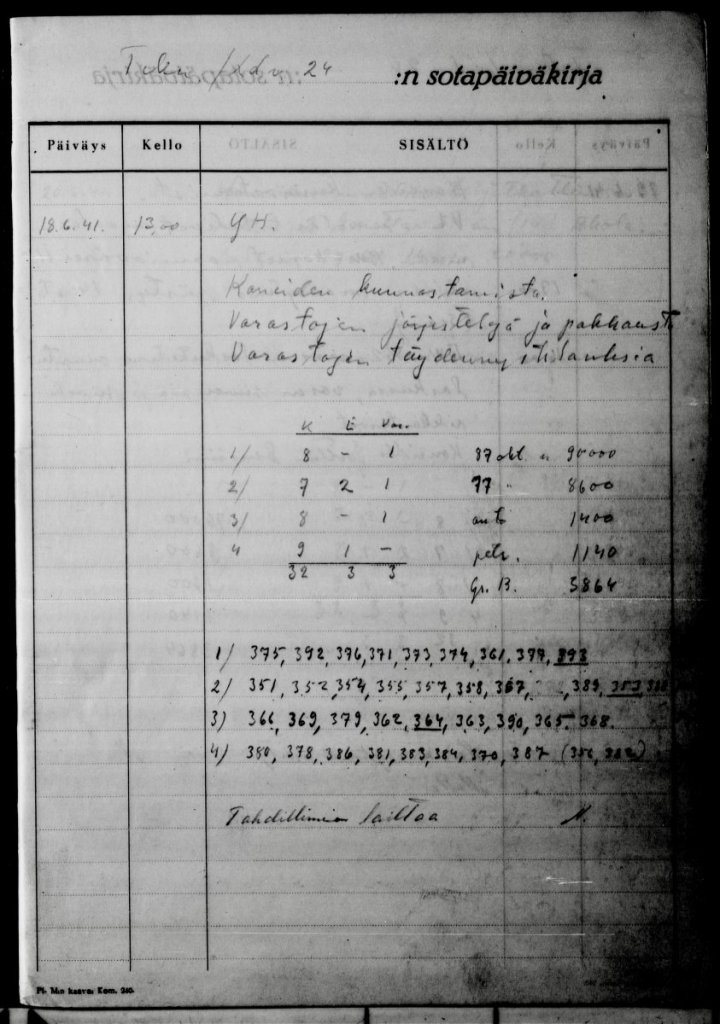 24 :n sotapäiväkirja
Päiväys Kello SISÄLTÖ
18.6.41. 13,00 YH.
Koneiden kunnostamista.
Varastojen järjestelyä ja pakkausta
Varastojen täydennystilauksia
K E Var.
1/ 8 - 1 87 okt. 90000
2/ 7 2 1 77 " 8600
3/ 8 - 1 auto 1400
4 9 1 - petr. 1140
32 3 3 Gr. B. 3864
1/ 375, 392, 376, 371, 373, 374, 361, 377, 393
2/ 351, 352, 354, 355, 357, 358, 367, 389, 353,
3) 366, 369, 379, 362, 364, 363, 390, 365, 368.
4) 380, 378, 386, 381, 383, 384, 370, 387
laittoa
Pl. Min kaavai Kom. 240.